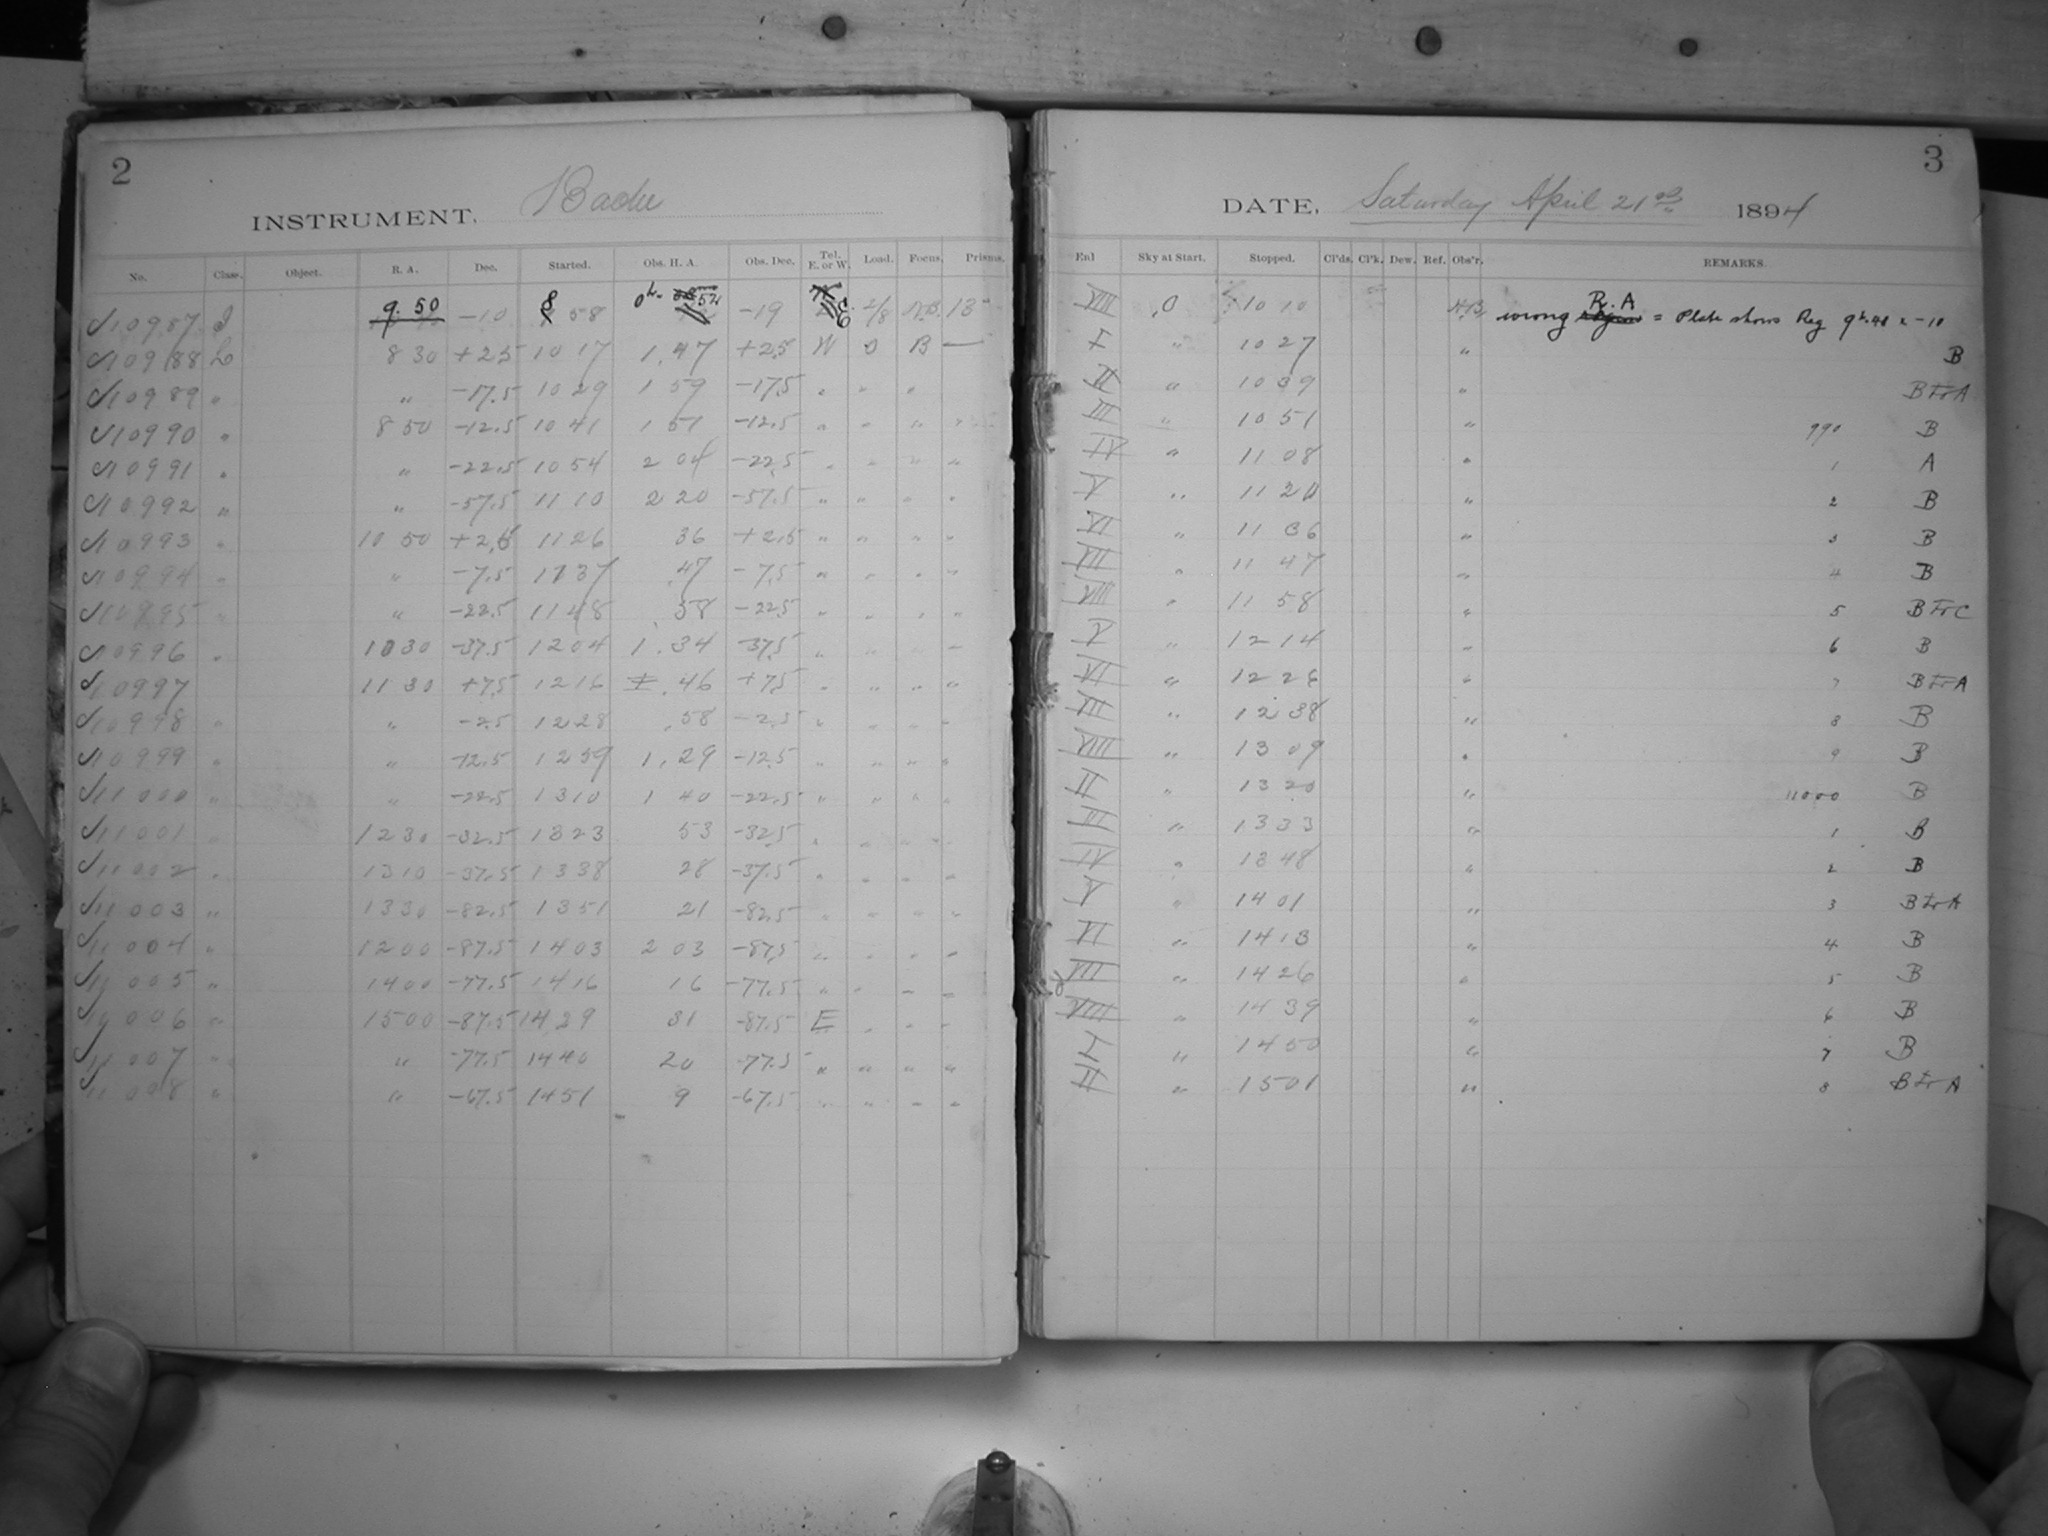 2
INSTRUMENT. Bache
No. Class. Object. R. A. Dec. Started. Obs. H. A. Obs. Dec. Tel. E. or W. Load. Focus. Prisms.
10987 9.50 -10 8 58 0h. -19 E 2/8 13
10988 L 8 30 +25 10 17 1.47 +25 W 0 B —
10989 " " -17.5 10 29 1 59 -17.5 " " "
10990 " 8 50 -12.5 10 41 1 51 -12.5 " " " "
10991 " " -22.5 10 54 2 04 -22.5 " " " "
10992 " " -57.5 11 10 2 20 -57.5 " " " "
10993 " 10 50 +2.5 11 26 36 +2.5 " " " "
10994 " " -7.5 11 37 .47 -7.5 " " " "
10995 " " -22.5 11 48 .58 -22.5 " " " "
10996 " 10 30 -37.5 12 04 1.34 -37.5 " " " "
10997 11 30 +7.5 12 16 .46 +7.5 " " " "
10998 " " -2.5 12 28 .58 -2.5 " " " "
10999 " " -12.5 12 59 1.29 -12.5 " " " "
11000 " " -22.5 13 10 1 40 -22.5 " " " "
11001 " 12 30 -32.5 13 23 53 -32.5 " " " "
11002 " 13 10 -37.5 13 38 28 -37.5 " " " "
11003 " 13 30 -82.5 13 51 21 -82.5 " " " "
11004 " 12 00 -87.5 14 03 2 03 -87.5 " " " "
11005 " 14 00 -77.5 14 16 16 -77.5 " " " "
11006 " 15 00 -87.5 14 29 31 -87.5 E " " "
11007 " " -77.5 14 40 20 -77.5 " " " "
11008 " " -67.5 14 51 9 -67.5 " " " "
3
DATE, Saturday April 21st 1894
Enl Sky at Start. Stopped. Cl'ds. Cl'k. Dew. Ref. Obs'r. REMARKS.
R. A
VIII 0 10 10 wrong = Plate shows Reg 9h.48 & -10
I " 10 27 " B
II " 10 39 " B to A
III " 10 51 " 990 B
IV " 11 08 " 1 A
V " 11 20 " 2 B
VI " 11 36 " 3 B
VII " 11 47 " 4 B
VIII " 11 58 " 5 B to C
V " 12 14 " 6 B
VI " 12 26 " 7 B to A
VII " 12 38 " 8 B
VIII " 13 09 " 9 B
II " 13 20 " 11000 B
III " 13 33 " 1 B
IV " 13 48 " 2 B
V " 14 01 " 3 B to A
VI " 14 13 " 4 B
VII " 14 26 " 5 B
VIII " 14 39 " 6 B
I " 14 50 " 7 B
II " 15 01 " 8 B to A